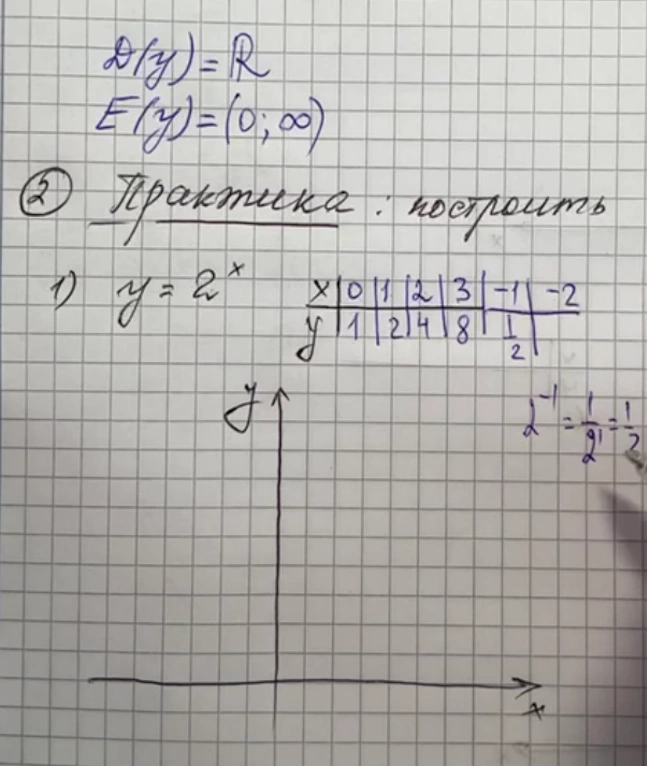 D(y) = ℝ
E(y) = (0; ∞)
② Практика : построить
1) y = 2ˣ
x | 0 | 1 | 2 | 3 | -1 | -2
y | 1 | 2 | 4 | 8 | 1/2 |
y
2⁻¹ = 1/2¹ = 1/2
x